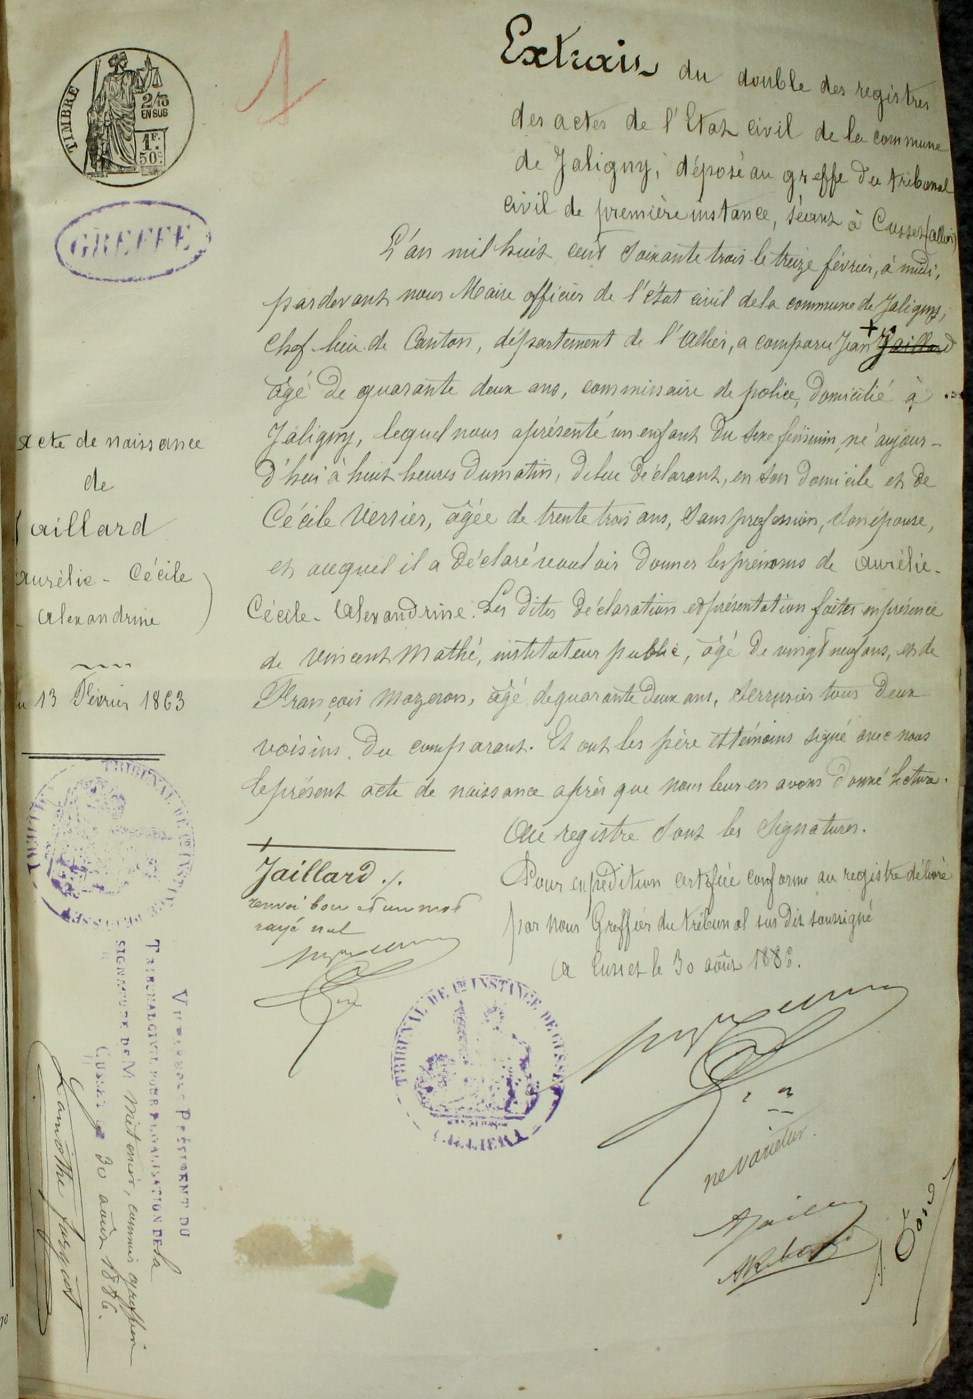 TIMBRE
2/10
EN SUS
1F.
50c
GREFFE
Extrait du double des registres
des actes de l'Etat civil de la commune
de Jaligny, déposé au greffe du tribunal
civil de première instance, séant à Cusset (allier)
L'an mil huit cent soixante trois le treize février, à midi,
pardevant nous Maire officier de l'état civil de la commune de Jaligny,
chef lieu de Canton, département de l'allier, a comparu Jean + Jaillard
âgé de quarante deux ans, commissaire de police, domicilié à
Jaligny, lequel nous a présenté un enfant du sexe féminin, né aujour-
d'hui à huit heures du matin, de lui déclarant, en son domicile et de
Cécile Verrier, âgée de trente trois ans, sans profession, son épouse,
et auquel il a déclaré vouloir donner les prénoms de aurélie-
Cécile-Alexandrine. Les dites déclaration et présentation faites en présence
de Vincent Mathé, instituteur public, âgé de vingt neuf ans, et de
François Mazeron, âgé de quarante deux ans, serrurier tous deux
voisins du comparant. Et ont les père et témoins signé avec nous
le présent acte de naissance après que nous leur en avons donné lecture.
Au registre sont les signatures.
Pour expédition certifiée conforme au registre délivré
par nous Greffier du tribunal sus dit soussigné
A Cusset le 30 août 1886.
acte de naissance
de
Jaillard
aurélie-Cécile
alexandrine
13 Février 1863
+
Jaillard ./.
renvoi bon et un mot
rayé nul
TRIBUNAL DE 1re INSTANCE DE CUSSET
(ALLIER)
TRIBUNAL DE 1re INSTANCE DE CUSSET
(ALLIER)
Vu par nous Président du
Tribunal civil pour légalisation de la
signature de M. commis greffier
Cusset, le 30 août 1886.
ne varietur.